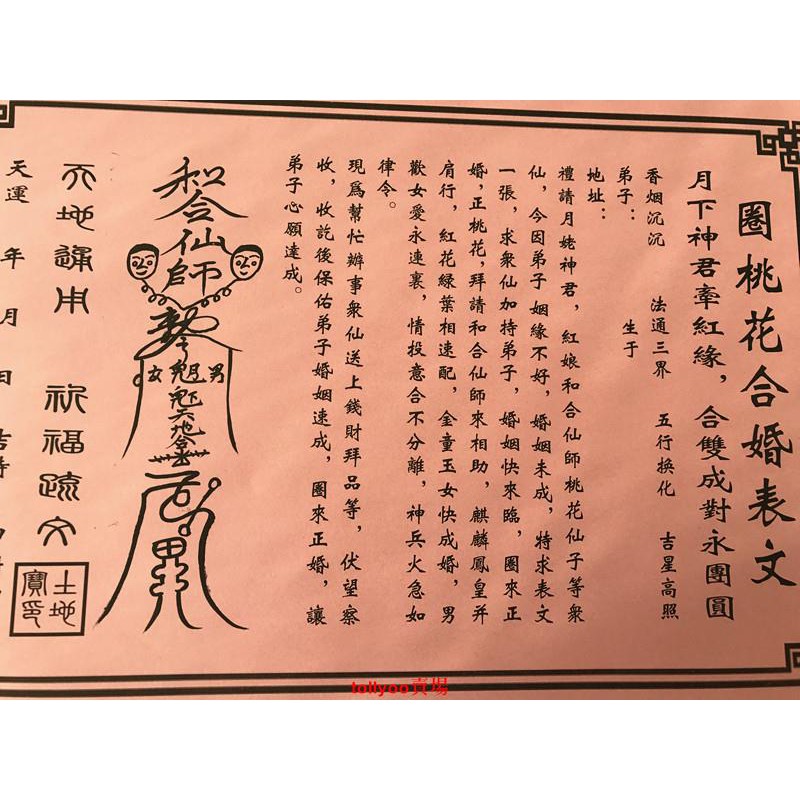 圈桃花合婚表文
月下神君牽紅緣，合雙成對永團圓
香烟沉沉　法通三界　五行換化　吉星高照
弟子：　生于
地址：
禮請月姥神君，紅娘和合仙師桃花仙子等衆
仙，今因弟子 姻緣不好，婚姻未成，特求表文
一張，求衆仙加持弟子，婚姻快來臨，圈來正
婚，正桃花，拜請和合仙師來相助，麒麟鳳皇并
肩行，紅花緑葉相速配，金童玉女快成婚，男
歡女愛永連裏，情投意合不分離，神兵火急如
律令。
現爲幫忙辦事衆仙送上錢財拜品等，伏望察
收，收訖後保佑弟子婚姻速成，圈來正婚，讓
弟子心願達成。
和合仙師
女　男
天地通用　祈福疏文
天運　年　月　日　吉時
土地寶印
lollyoo賣場